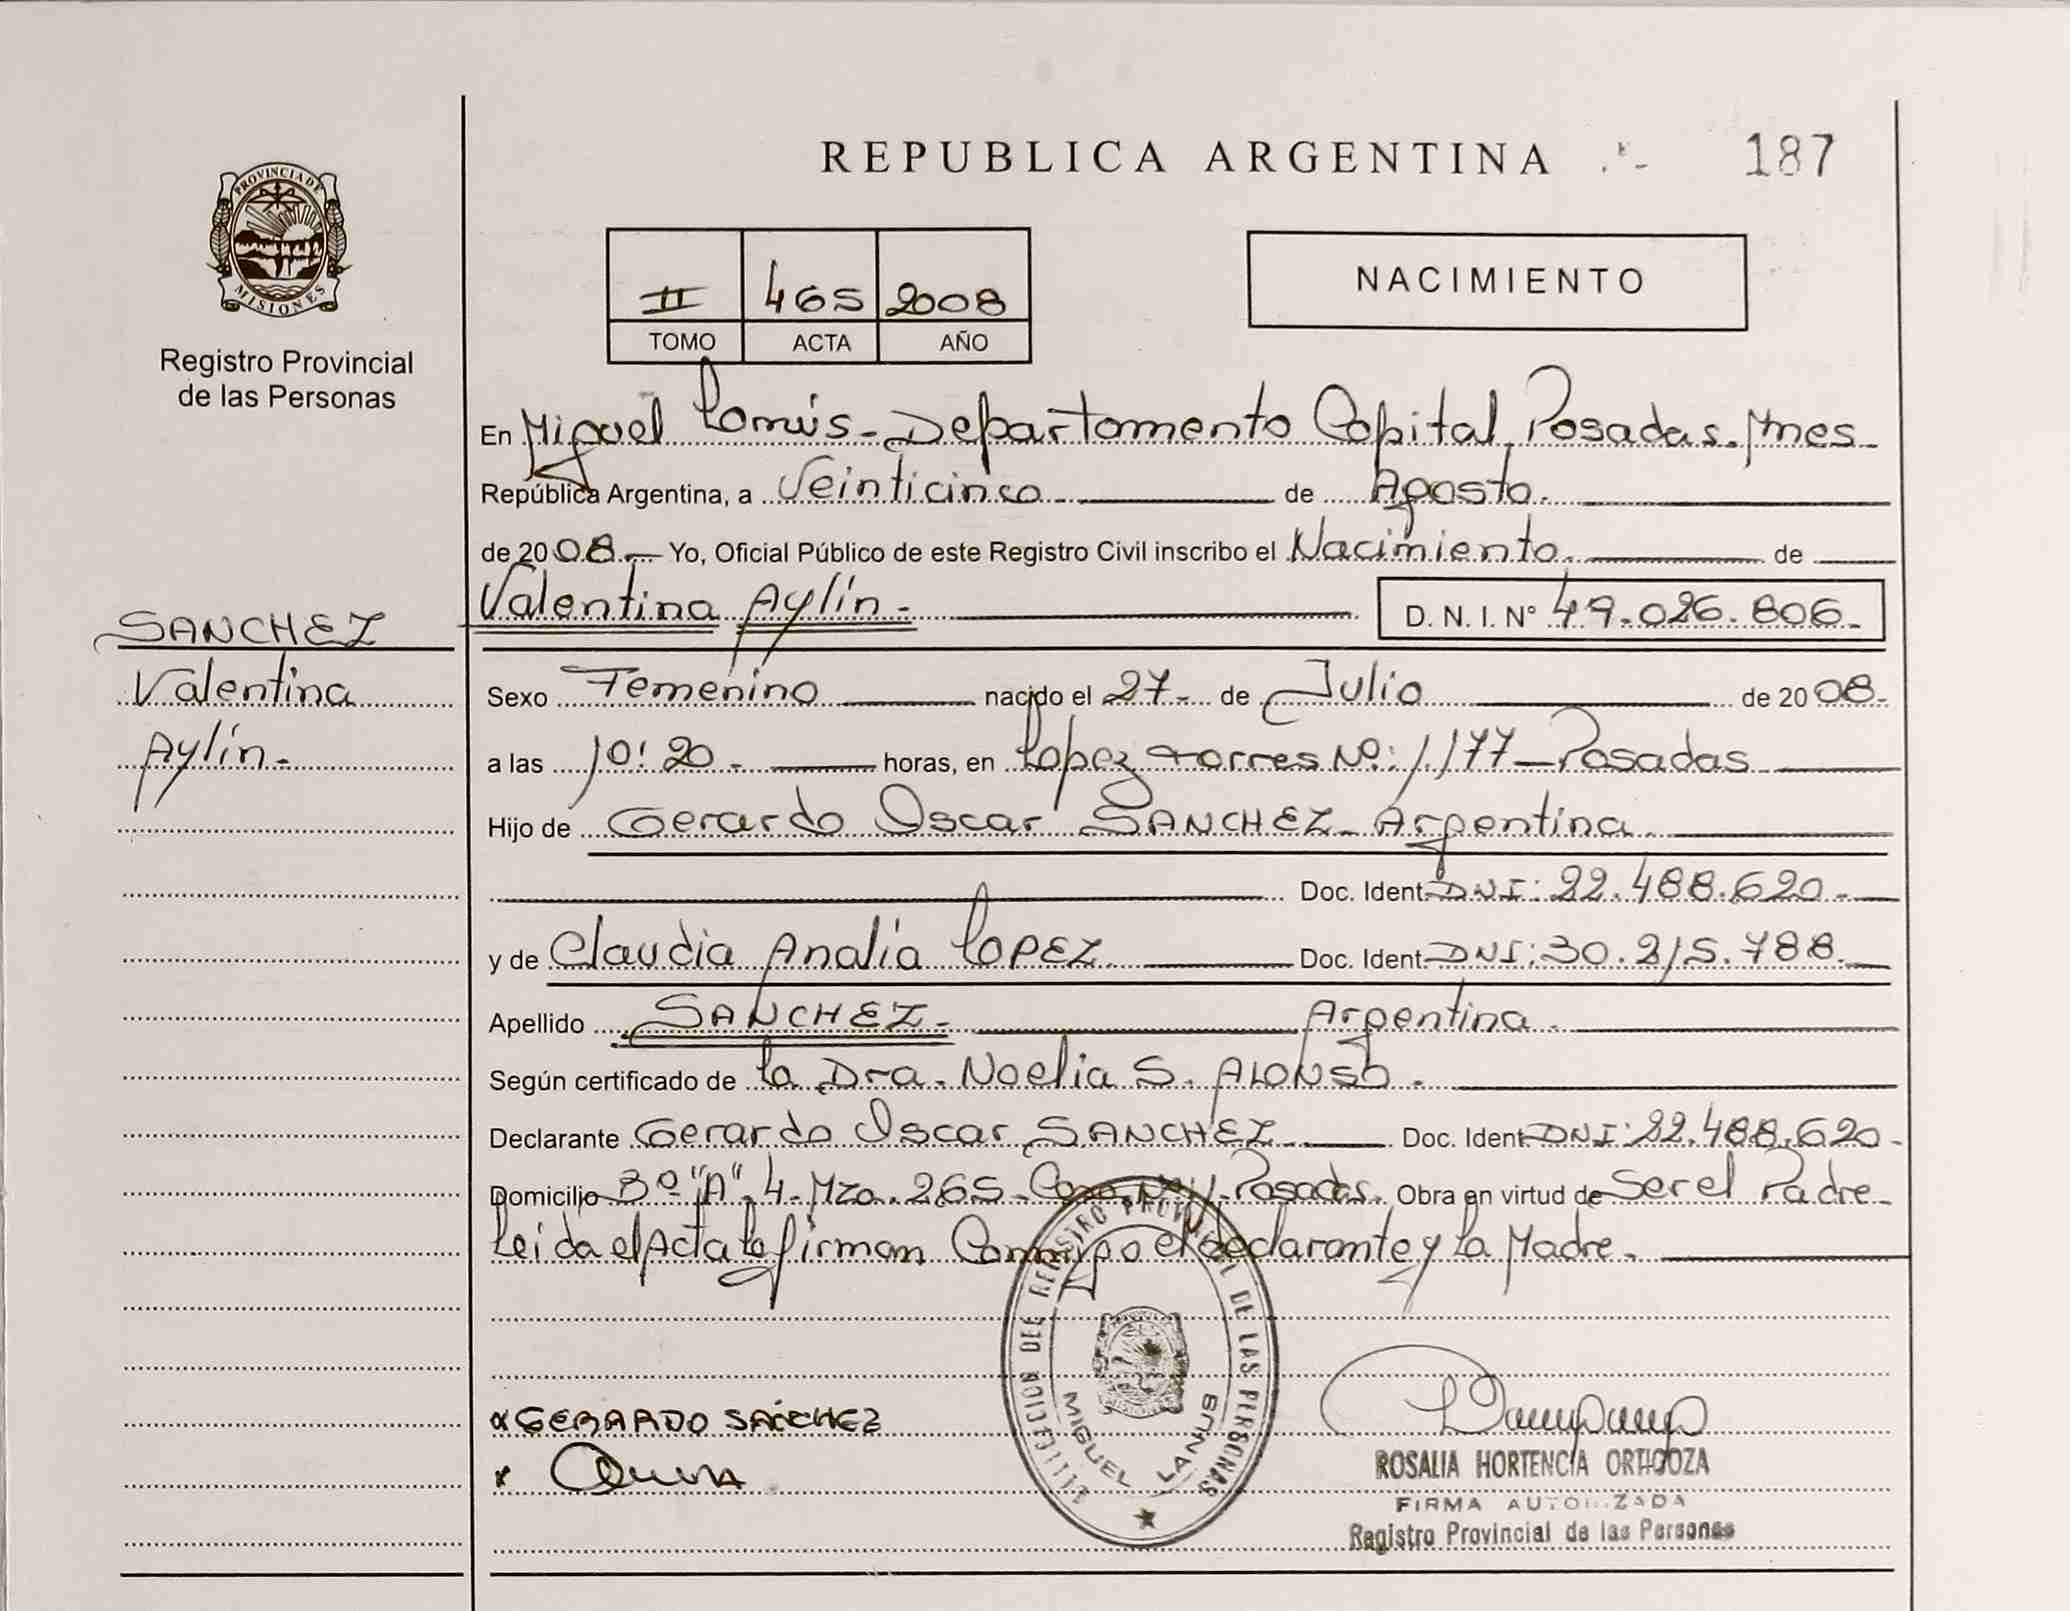 REPUBLICA ARGENTINA 187
PROVINCIA DE
MISIONES
Registro Provincial
de las Personas
II 465 2008
TOMO ACTA AÑO
NACIMIENTO
En Miguel Lanús - Departamento Capital, Posadas - Mnes -
República Argentina, a Veinticinco de Agosto.
de 2008.- Yo, Oficial Público de este Registro Civil inscribo el Nacimiento. de
Valentina Aylín - D. N. I. Nº 49.026.806-
SANCHEZ
Valentina
Aylín -
Sexo Femenino nacido el 27- de Julio de 2008.-
a las 10:20 - horas, en Lopez torres Nº: 1.177 - Posadas
Hijo de Gerardo Oscar SANCHEZ - Argentina
Doc. Ident. DNI: 22.488.620-
y de Claudia Analía LOPEZ Doc. Ident. DNI: 30.215.788.
Apellido SANCHEZ - Argentina.
Según certificado de la Dra. Noelia S. ALONSO.
Declarante Gerardo Oscar SANCHEZ Doc. Ident. DNI: 22.488.620-
Domicilio 3º "A" 4 - Mza. 265 - Posadas. Obra en virtud de Ser el Padre -
Leida el Acta la firman Conmigo el declarante y la Madre.
x GERARDO SÁNCHEZ
x
REGISTRO PROVINCIAL DE LAS PERSONAS
MIGUEL LANUS
ROSALIA HORTENCIA ORTIGOZA
FIRMA AUTORIZADA
Registro Provincial de las Personas